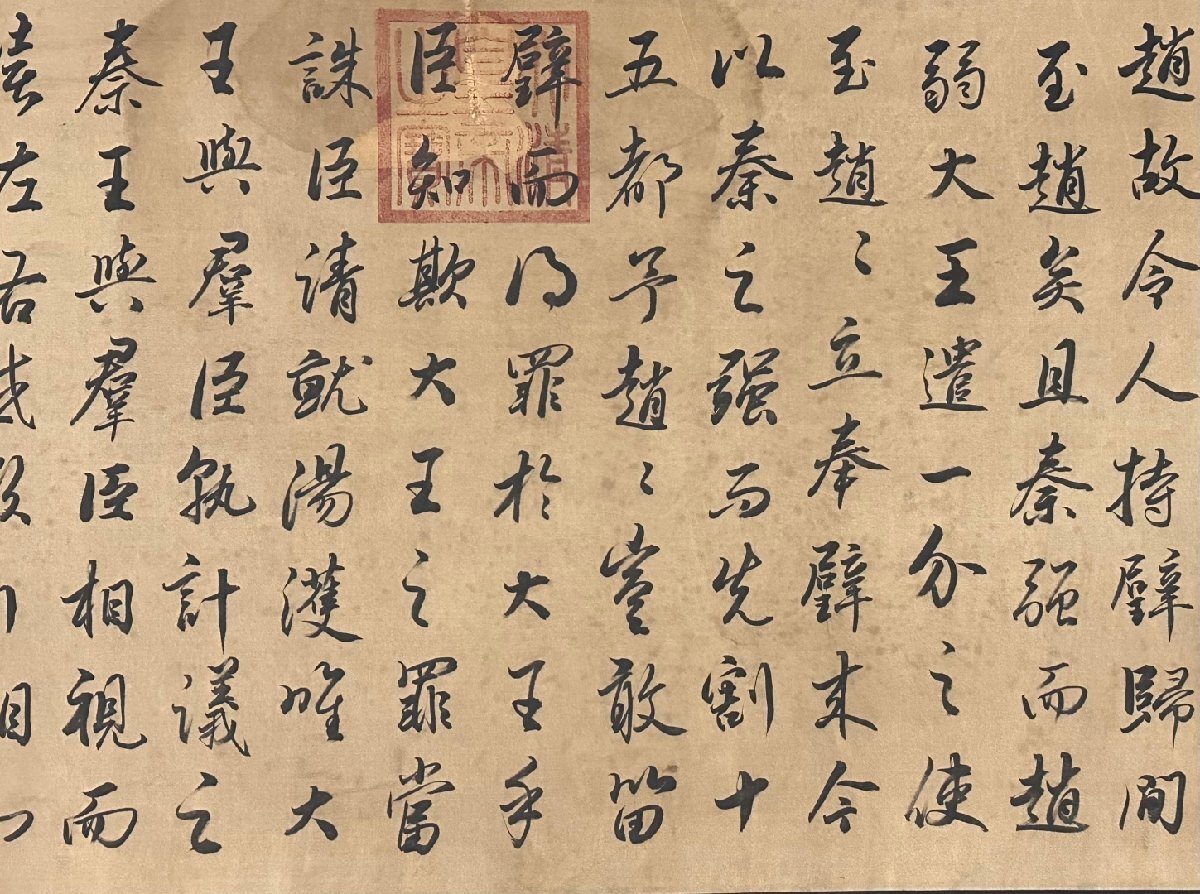 趙故令人持璧歸間
至趙矣且秦强而趙
弱大王遣一介之使
至趙〻立奉璧來今
以秦之强而先割十
五都予趙〻豈敢留
璧而得罪於大王乎
臣知欺大王之罪當
誅臣請就湯濩唯大
王與羣臣孰計議之
秦王與羣臣相視而
嘻左右或欲引相